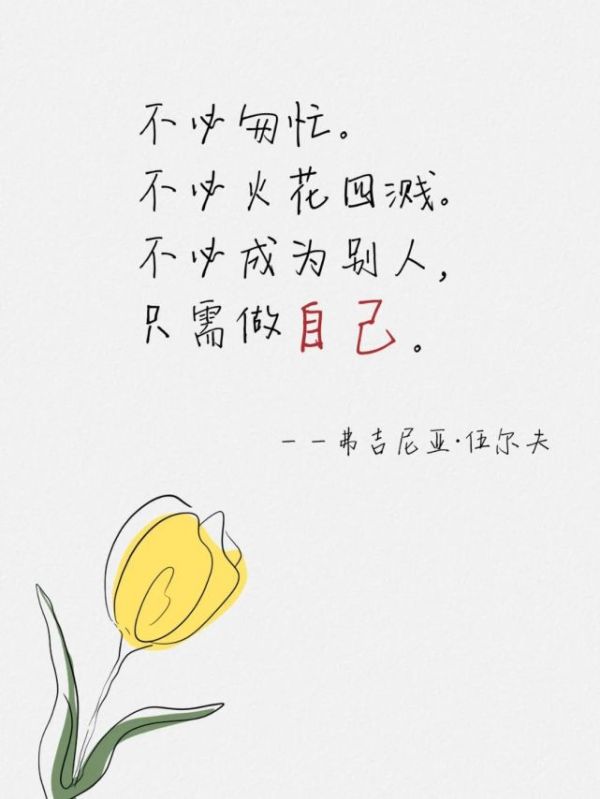 不必匆忙。
不必火花四溅。
不必成为别人，
只需做自己。
——弗吉尼亚·伍尔夫